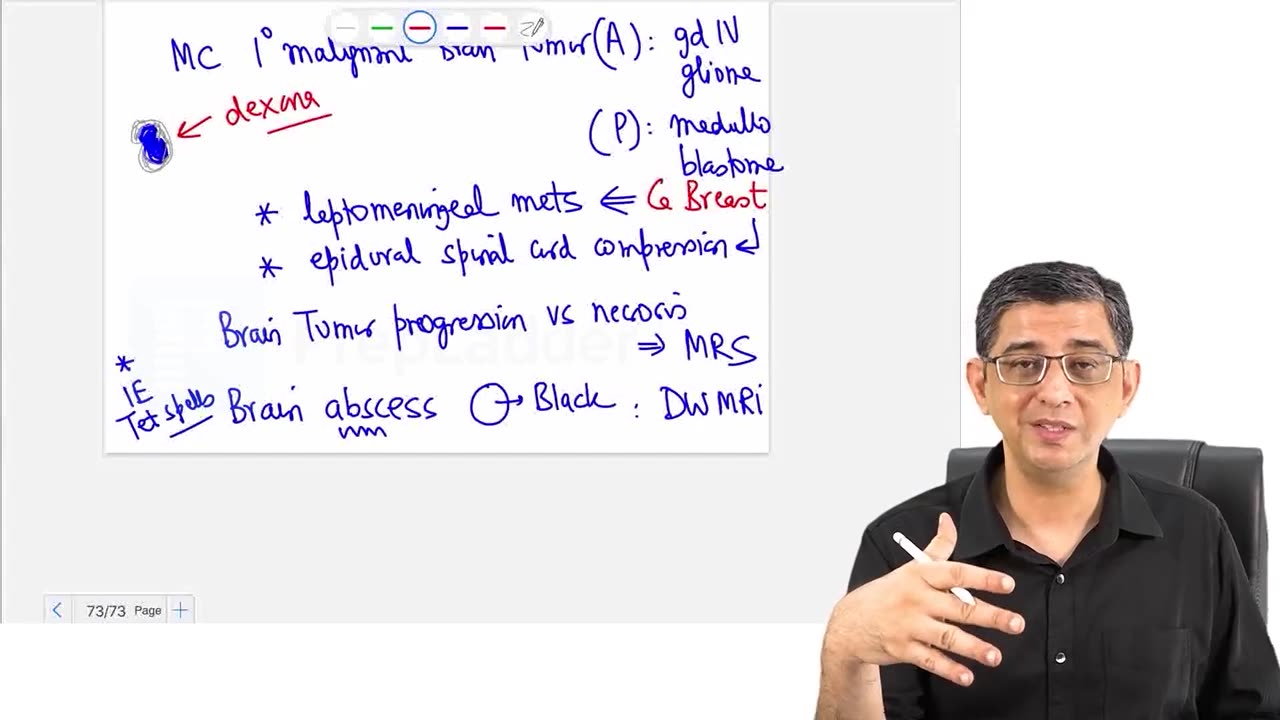 MC 1° malignant Brain Tumor (A): gd IV
glioma
dexona
(P): medullo
blastoma
* leptomeningeal mets ⇐ Ca Breast
* epidural spinal cord compression ↲
Brain Tumor progression vs necrosis
⇒ MRS
*
IE
Tet spells
Brain abscess → Black : DWMRI
73/73 Page